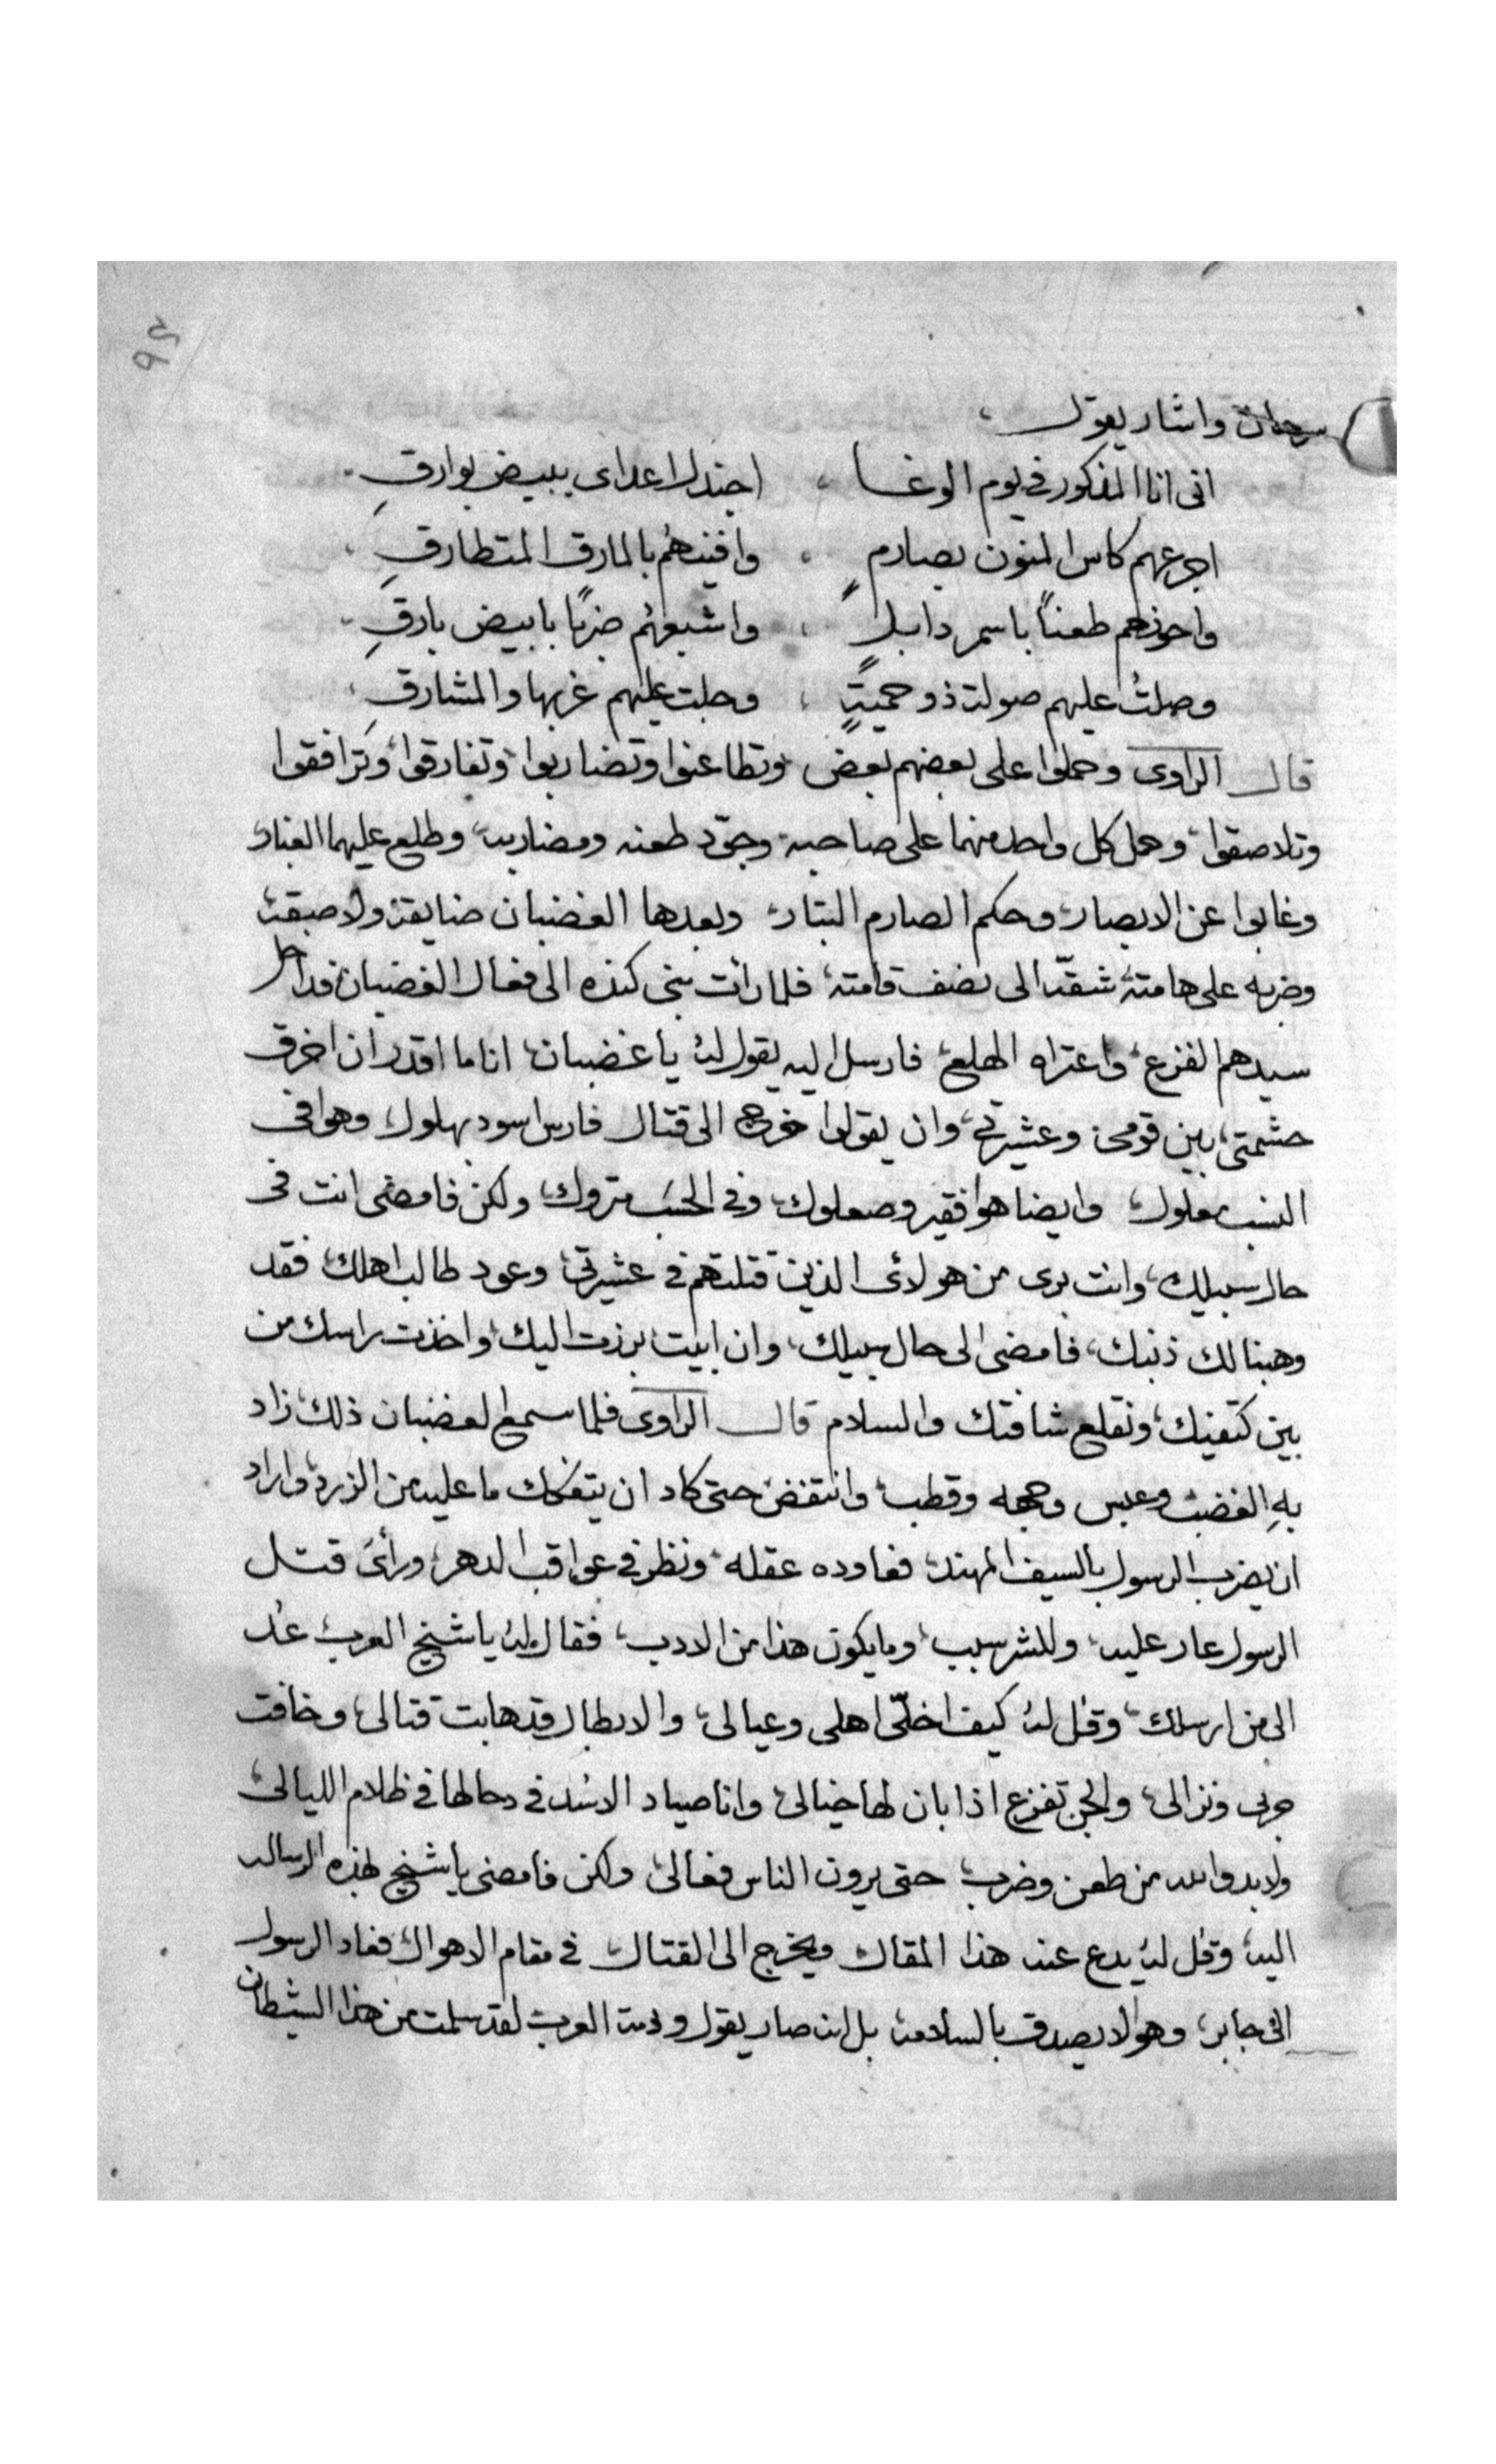 ٢٩
سرحان واشار يقول
انى انا المذكور فى يوم الوغـا ، اجندل اعداى ببيض بوارقِ
اجرعهم كاس المنون بصارمٍ ، وافنيهُم بالمارق المتطارقِ
واحوزهم طعناً باسمر دابلٍ ، واشبعهُم ضرباً بابيض بارقِ
وصلتُ عليهم صولة ذو حميةٍ ، وجلت عليهم غربها والمشارقِ
قال الراوى وحملوا على بعضهم بعض وتطاعنوا وتضاربوا وتفارقوا وترافقوا
وتلاصقوا وحمل كل واحد منهما على صاحبه وجوّد طعنه ومضاربه وطلع عليهما الغبار
وغابوا عن الابصار وحكم الصارم البتار وبعدها الغضبان ضايقه ولاصقه
وضربه على هامته شقّه الى نصف قامته فلما رات بنى كنده الى فعال الغضبان فداخل
سيدهم الفزع واعتراه الهلع فارسل اليه يقول له يا غضبان انا ما اقدر ان اخرق
حشمتى بين قومى وعشيرتى وان يقولوا خرج الى قتال فارس اسود بهلول وهوا فى
النسب معلول وايضا هوا فقير وصعلوك وفى الحسَب متروك ولكن فامضى انت فى
حال سبيلك وانت برى من هولائ الذين قتلتهم فى عشيرتى وعود طالب اهلك فقد
وهبنا لك ذنبك فامضى الى حال سبيلك وان ابيت برزت اليك واخذت براسك من
بين كتفيك ونقلع شافتك والسلام قال الراوى فلما سمع الغضبان ذلك زاد
بهِ الغضب وعبس وجهه وقطب وانتفض حتى كاد ان يتفكك ما عليه من الزرد واراد
ان يضرب الرسول بالسيف المهند فعاوده عقله ونظر فى عواقب الدهر ورأئ قتل
الرسول عار عليه وللشر سبب وما يكون هذا من الادب فقال له يا شيخ العرب عُد
الى من ارسلك وقل له كيف اخلّى اهلى وعيالى والابطال قد هابت قتالى وخافت
حربى ونزالى والجن تفزع اذا بان لها خيالى وانا صياد الاسُد فى دحالها فى ظلام الليالى
ولابد والله من طعن وضرب حتى يرون الناس فعالى ولكن فامضى يا شيخ بهذه الرساله
اليه وقل له يدع عنه هذا المقال ويخرج الى القتال فى مقام الاهوال فعاد الرسول
الى جابر وهوا لا يصدق بالسلامه بل انه صار يقول وذمة العرب لقد سلمت من هذا الشيطان